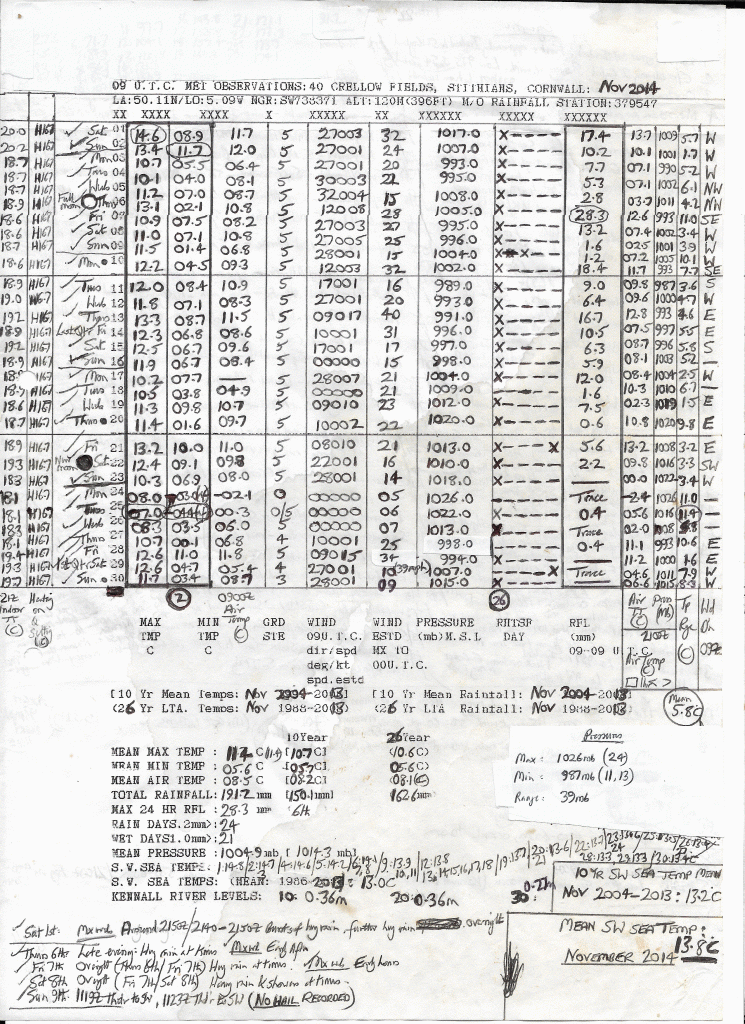 09 U.T.C. MET OBSERVATIONS:40 CRELLOW FIELDS, STITHIANS, CORNWALL: NOV 2014
LA:50.11N/LO:5.09W NGR:SW738371 ALT:120M(396FT) M/O RAINFALL STATION:379547
XX XXXX XXXX X XXXXX XX XXXXXX XXXXX XXXXXX
20.0 H167 Sat 01 14.6 08.9 11.7 5 27003 32 1017.0 X----- 17.4 13.7 1009 5.7 W
20.2 H167 Sun 02 13.4 11.7 12.0 5 27001 24 1007.0 X----- 10.2 10.1 1001 1.7 W
18.7 H167 Mon 03 10.7 05.5 06.4 5 27001 20 993.0 X----- 7.7 07.1 990 5.2 W
18.7 H167 Tues 04 10.1 04.0 08.1 5 30003 21 995.0 X----- 5.3 07.1 1002 6.1 NW
18.7 H167 Wed 05 11.2 07.0 08.7 5 32004 15 1008.0 X----- 2.8 03.7 1011 4.2 NW
18.9 H167 Full moon Thurs 06 13.1 02.1 10.8 5 12008 28 1005.0 X----- 28.3 12.6 993 11.0 SE
18.6 H167 Fri 07 10.9 07.5 08.2 5 27003 27 995.0 X----- 13.2 07.4 1002 3.4 W
18.6 H167 Sat 08 11.0 07.1 10.8 5 27005 25 996.0 X----- 1.6 02.5 1001 3.9 W
18.7 H167 Sun 09 11.5 01.4 06.8 5 28001 15 1004.0 1.2 07.2 1005 10.1 W
18.6 H167 Mon 10 12.2 04.5 09.3 5 12003 32 1002.0 X----- 18.4 11.7 993 7.7 SE
18.9 H167 Tues 11 12.0 08.4 10.9 5 17001 16 989.0 X----- 9.0 09.8 987 3.6 S
19.0 Wed 12 11.8 07.1 08.3 5 27001 20 993.0 X----- 6.4 09.6 1000 4.7 W
19.2 H167 Thurs 13 13.3 08.7 11.5 5 09017 40 991.0 X----- 16.7 12.8 993 4.6 E
18.9 H167 Last Qtr Fri 14 12.3 06.8 08.6 5 10001 31 996.0 X----- 10.5 07.5 997 5.5 E
18.9 H167 Sat 15 12.5 06.7 09.6 5 17001 17 997.0 X----- 6.3 08.7 996 5.8 S
18.9 H167 Sun 16 11.9 06.7 08.4 5 00000 15 998.0 X----- 5.9 08.1 1003 5.2 —
H167 Mon 17 10.2 07.7 — 5 28007 21 1004.0 X----- 12.0 08.4 1004 2.5 W
18.8 H167 Tues 18 10.5 03.8 04.9 5 00000 21 1009.0 X----- 1.6 10.3 1010 6.7 —
18.6 H167 Wed 19 11.3 09.8 10.7 5 09010 23 1012.0 X----- 7.5 02.3 1019 1.5 E
18.7 H167 Thurs 20 11.4 01.6 09.7 5 10002 22 1020.0 X----- 0.6 10.8 1020 9.8 E
18.9 H167 Fri 21 13.2 10.0 11.0 5 08010 21 1013.0 X----X 5.6 13.2 1008 3.2 E
19.3 H167 New moon Sat 22 12.4 09.1 09.8 5 22001 16 1010.0 X----- 2.2 09.8 1016 3.3 SW
18.3 H167 Sun 23 10.3 06.9 08.0 5 28001 14 1018.0 X----- — 00.0 1022 3.4 W
18.1 H167 Mon 24 08.0 -02.1 0 00000 05 1026.0 X----- Trace -2.4 1026 11.0 —
18.1 H167 Tues 25 07.0 00.3 0/5 00000 06 1022.0 X----- 0.4 05.6 1016 11.4 —
18.3 H167 Wed 26 08.3 03.5 06.0 5 00000 07 1013.0 X----- Trace 02.0 —
18.1 H167 Thurs 27 10.7 00.1 06.8 4 10001 25 998.0 X----- 0.4 11.1 993 10.6 E
19.4 H167 Fri 28 12.6 11.0 11.8 5 09015 34 994.0 X----- — 11.2 1000 1.6 E
19.3 H167 1st Qtr Sat 29 12.6 04.7 05.4 4 27001 10 (39mph) 1007.0 X----X Trace 04.6 1011 7.9 W
19.7 H167 Sun 30 11.7 03.4 08.7 3 28001 09 1015.0 X----- 06.6 1015 8.3 W
21Z Indoor T (C) Heating on (C) 2 0900Z Air Temp (C) 26 Air T (C) Press (mb) 2100Z Tp Rge (C) Wd Dn 09Z
MAX MIN GRD WIND WIND PRESSURE RNTSF RFL
TMP TMP STE 09U.T.C. ESTD (mb)M.S.L DAY (mm)
C C dir/spd MX TO 09-09 U.T.C.
deg/kt 00U.T.C.
spd.estd
Mean 5.8C
[10 Yr Mean Temps: Nov 2004-2013] [10 Yr Mean Rainfall: Nov 2004-2013]
(26 Yr LTA. Temps: Nov 1988-2013 (26 Yr LTA Rainfall: Nov 1988-2013
10Year 26Year
MEAN MAX TEMP : 11.4 C (11.4) [10.7C] (10.6C)
MEAN MIN TEMP : 05.6 C [05.7C] (05.6C)
MEAN AIR TEMP : 08.5 C [08.2C] (08.1C)
TOTAL RAINFALL: 191.2 mm [150.1mm] 162.6mm
MAX 24 HR RFL : 28.3 mm 6th
RAIN DAYS.2mm>: 24
WET DAYS1.0mm>: 21
MEAN PRESSURE : 1004.9mb [ 1014.3 mb]
Pressures
Max: 1026mb (24)
Min: 987mb (11,13)
Range: 39mb
S.W. SEA TEMPS:
S.W. SEA TEMPS: (MEAN: 1986-2013: 13.0C
KENNALL RIVER LEVELS: 10: 0.36m 20: 0.36m 30:
10 YR SW SEA TEMP MEAN
NOV 2004-2013: 13.2C
MEAN SW SEA TEMP:
NOVEMBER 2014 13.8C
Sat 1st: Mx wd Around 2150z/2140-2150z Bursts of hvy rain, further hvy rain overnight
Thurs 6th: Late evening: Hvy rain at times Mx wd Early Afn
Fri 7th Ovnight (Thurs 6th/Fri 7th) Hvy rain at times. Mx wd Early hours
Sat 8th Ovnight (Fri 7th/Sat 8th) Heavy rain & showers at times
Sun 9th: 1119Z Thdr to SW, 1123Z Thdr to SW (NO HAIL RECORDED)